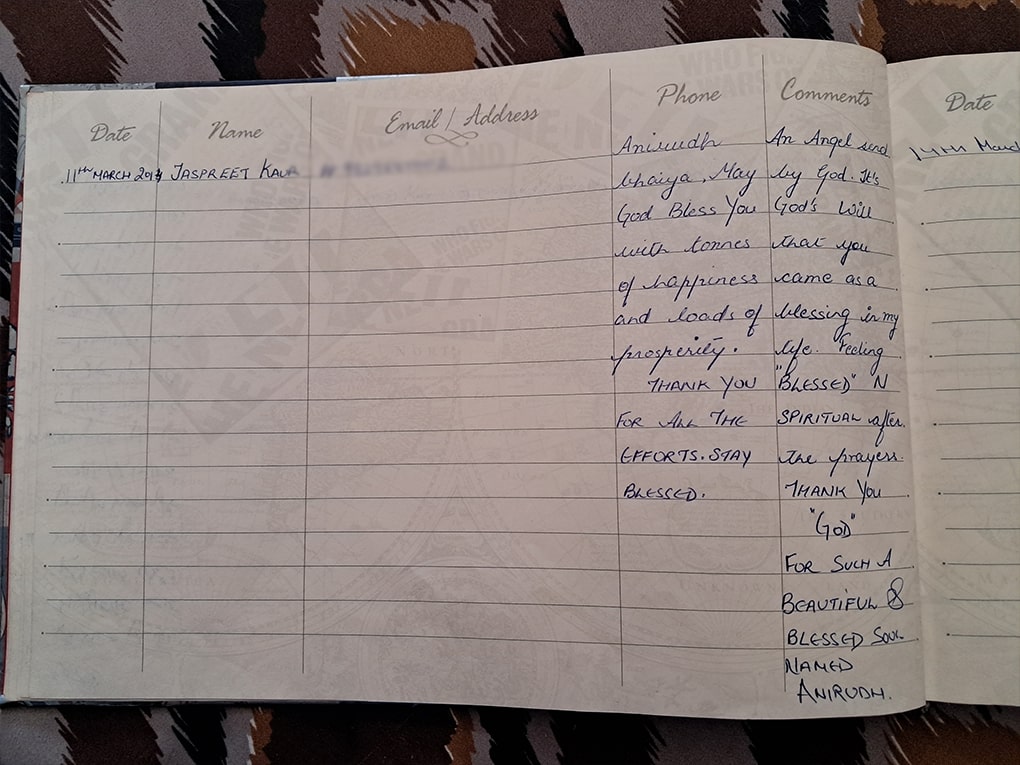 Date Name Email / Address Phone Comments Date
11TH MARCH JASPREET KAUR
Anirudh
bhaiya, May
God Bless You
with tonnes
of happiness
and loads of
prosperity.
THANK YOU
FOR ALL THE
EFFORTS. STAY
BLESSED.
An Angel send
by God. It's
God's Will
that you
came as a
blessing in my
life. Feeling
"BLESSED" N
SPIRITUAL after
the prayers.
THANK YOU
"GOD"
FOR SUCH A
BEAUTIFUL &
BLESSED SOUL
NAMED
ANIRUDH.
14TH March